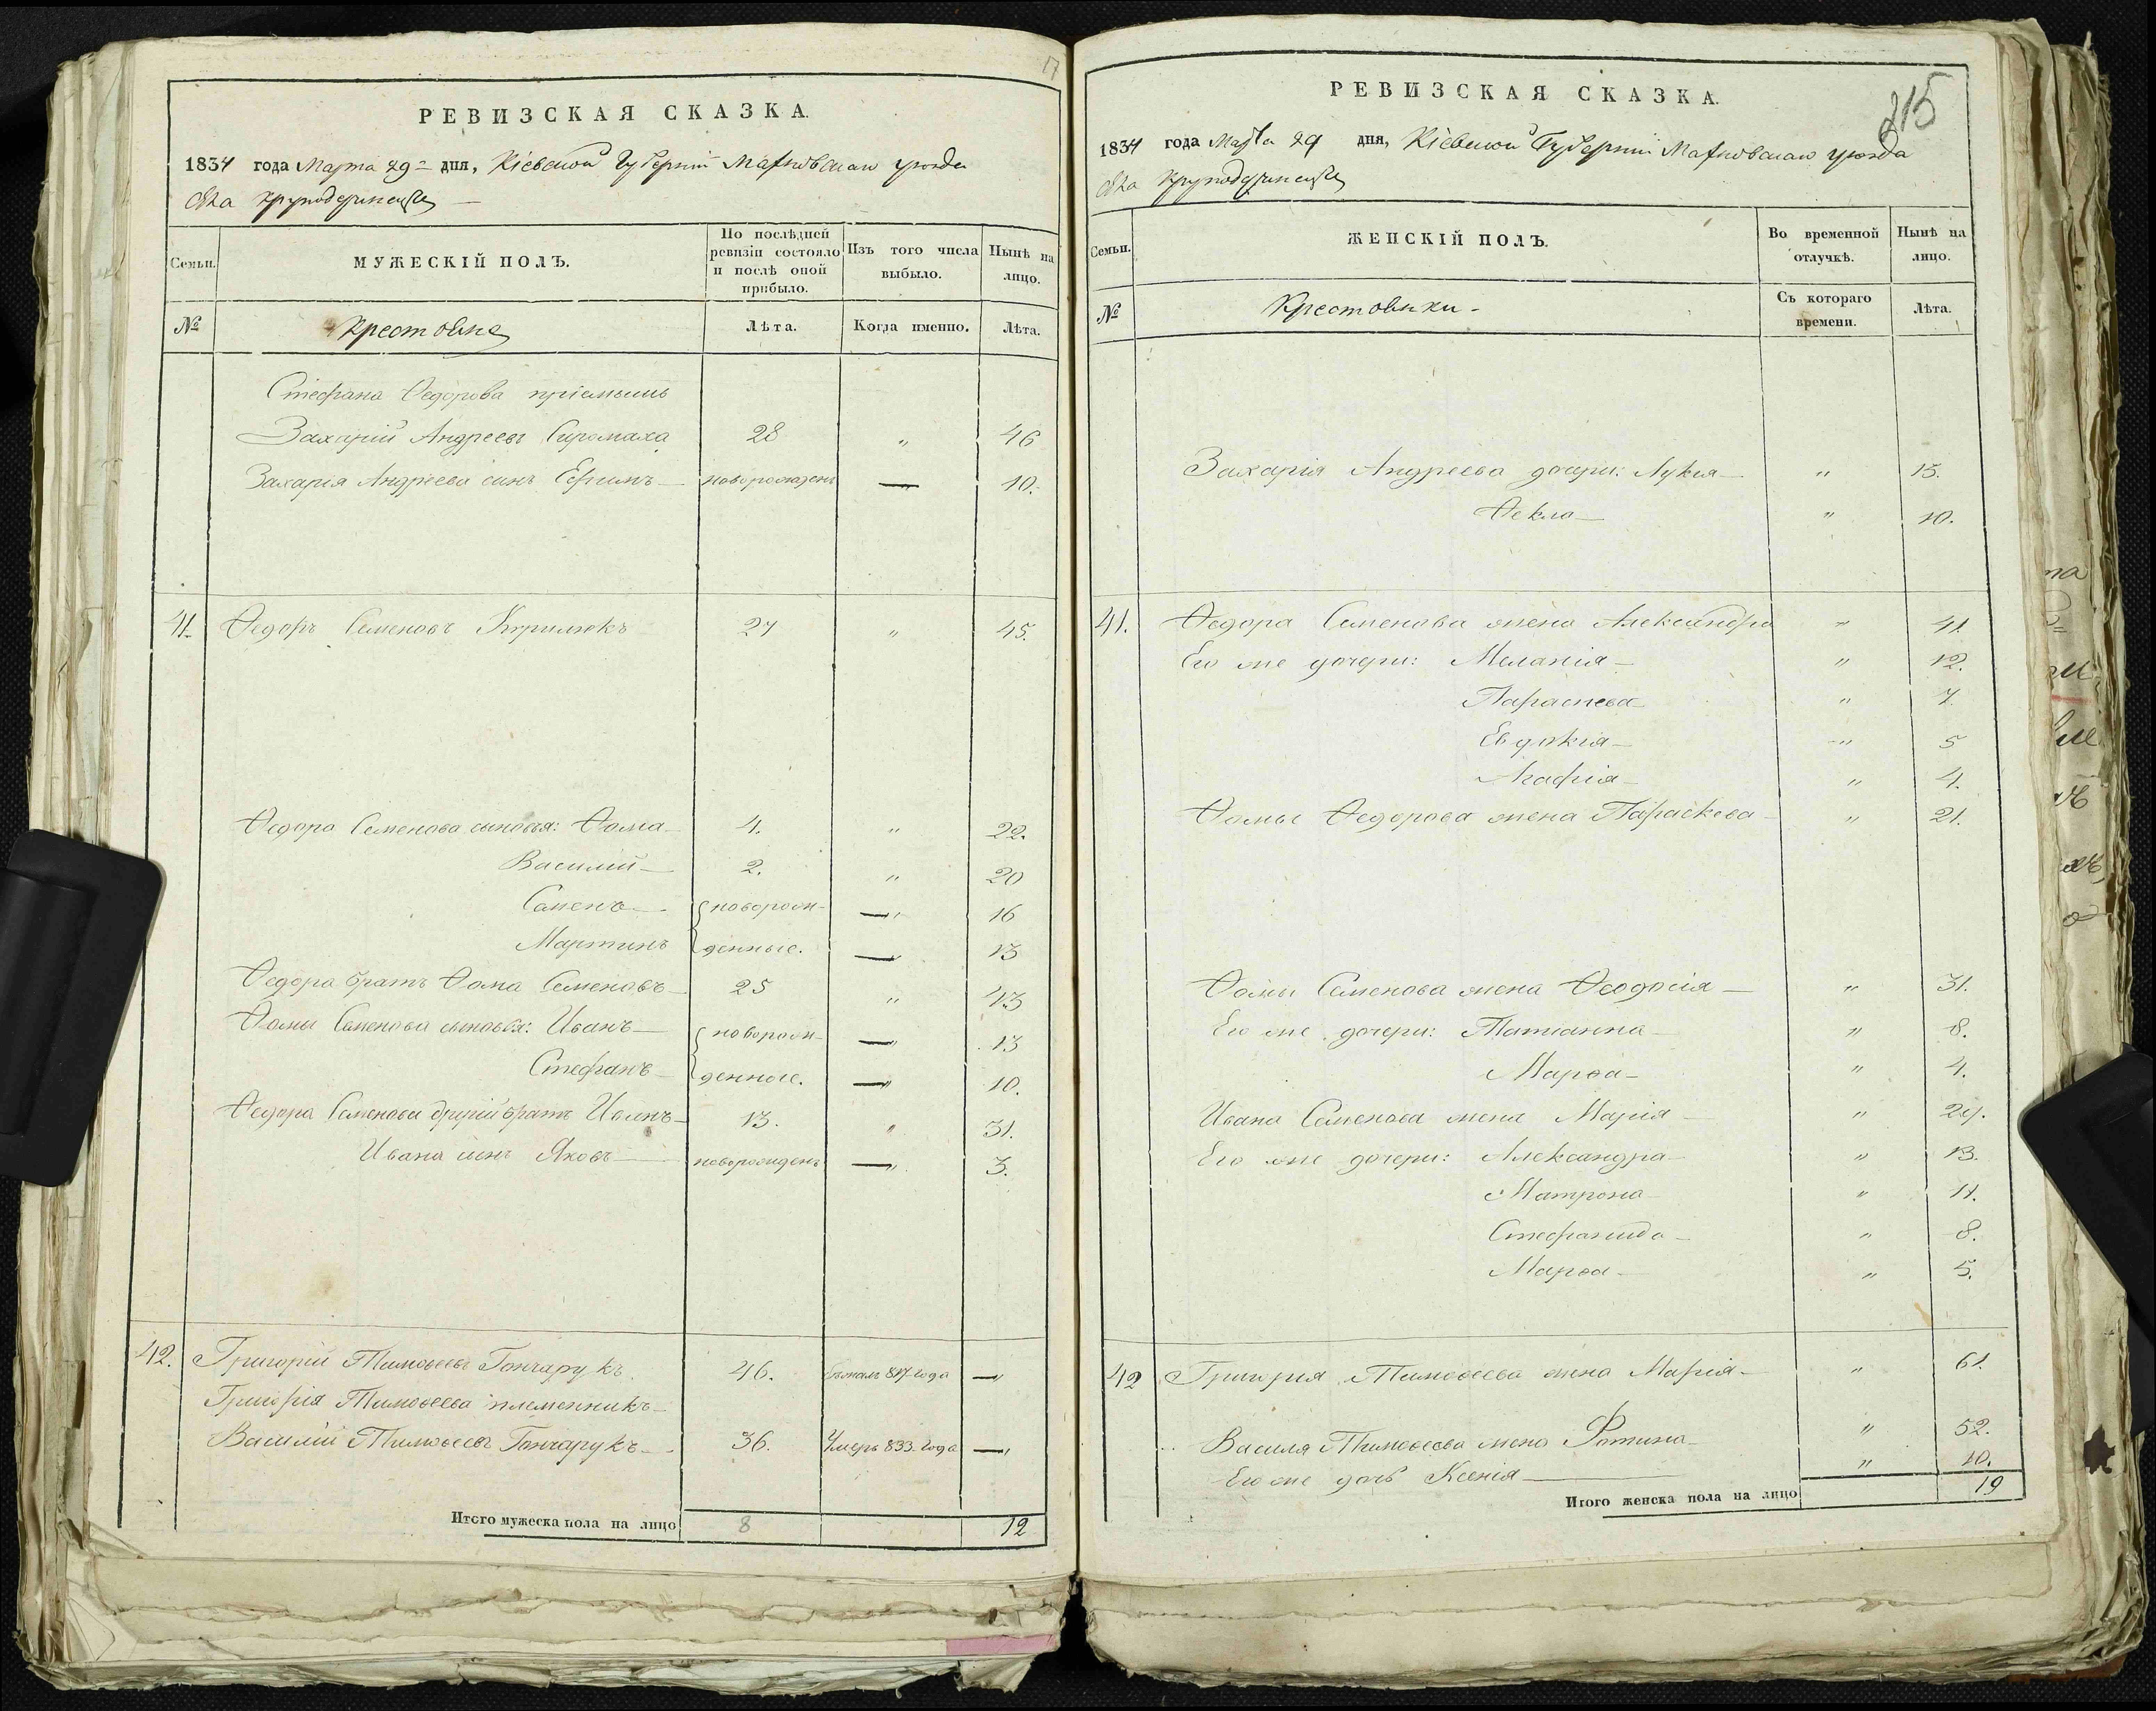 17
РЕВИЗСКАЯ СКАЗКА.
1834 года Марта 29 = дня, Кіевской Губерніи Махновскаго уезда
села
Семьи. МУЖЕСКІЙ ПОЛЪ. По послѣдней ревизіи состояло и послѣ оной прибыло. Изъ того числа выбыло. Нынѣ на лицо.
№ Крестьяне Лѣта. Когда именно. Лѣта.
Стефана Ѳедорова пріемышъ
Захарій Андреевъ Сиромаха 28 „ 46
Захарія Андреева синъ Ефимъ — новорожденъ — 10.
41. Ѳедоръ Семеновъ 27 „ 45.
Ѳедора Семенова сыновья: Ѳома 4. „ 22.
Василий — 2. „ 20
Семенъ — новорож- —„ 16
Мартинъ денные. —„ 13
Ѳедора братъ Ѳома Семеновъ 25 „ 43
Ѳомы Семенова сыновья: Иванъ — новорож- —„ 13
Стефанъ — денные. —„ 10.
Ѳедора Семенова другій братъ Иванъ — 13. „ 31.
Ивана синъ Яковъ — новорожденъ —„ 3.
42. Григорій Тимоѳеевъ Гончарукъ 46. 817 года —„
Григорія Тимоѳеева племенникъ —
Василий Тимоѳеевъ Гончарукъ — 36. Умеръ 833. года —„
Итого мужеска пола на лицо 8 12
215
РЕВИЗСКАЯ СКАЗКА.
1834 года Марта 29 дня, Кіевской Губерніи Махновскаго уезда
села
Семьи. ЖЕНСКІЙ ПОЛЪ. Во временной отлучкѣ. Нынѣ на лицо.
№ Крестьянки - Съ котораго времени. Лѣта.
Захарія Андреева дочери: Лукія — „ 15.
Ѳекла — „ 10.
41. Ѳедора Семенова жена Александра „ 41.
Его же дочери: Меланія — „ 12.
Параскева „ 7.
Евдокія — „ 5
Агафія — „ 4.
Ѳомы Ѳедорова жена Параскева — „ 21.
Ѳомы Семенова жена Ѳеодосія — „ 31.
Его же дочери: Татіанна — „ 8.
Марѳа — „ 4.
Ивана Семенова жена Марія — „ 29.
Его же дочери: Александра — „ 13.
Матрона — „ 11.
Стефанида — „ 8.
Марѳа — „ 5.
42 Григорія Тимоѳеева жена Марія — „ 61.
Василя Тимоѳеева жена Фотина — „ 52.
Его же дочь Ксенія — „ 10.
Итого женска пола на лицо 19